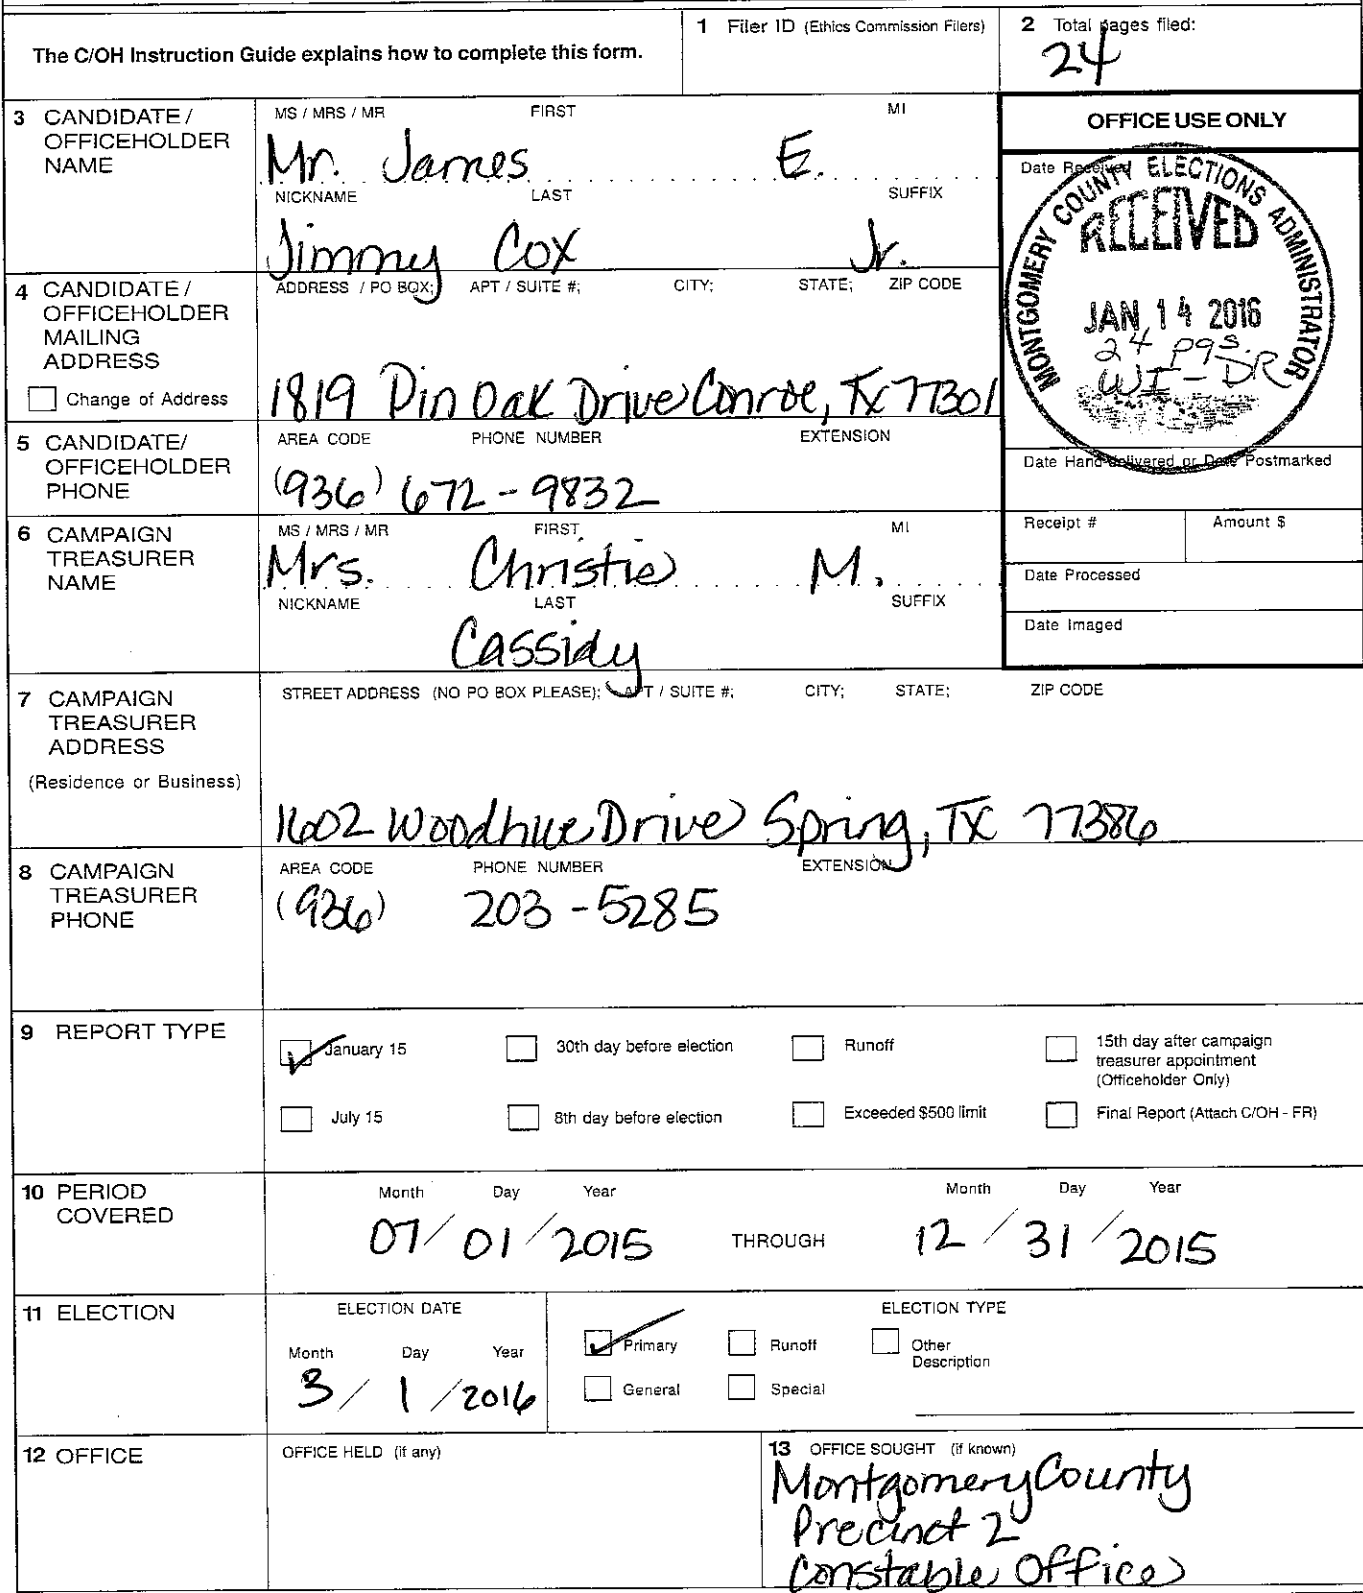 The C/OH Instruction Guide explains how to complete this form.
1 Filer ID (Ethics Commission Filers)
2 Total pages filed:
24
3 CANDIDATE / OFFICEHOLDER NAME
MS / MRS / MR FIRST MI
Mr. James E.
NICKNAME LAST SUFFIX
Jimmy Cox Jr.
OFFICE USE ONLY
Date Received
MONTGOMERY COUNTY ELECTIONS ADMINISTRATOR
RECEIVED
JAN 14 2016
24 pgs.
WI-DR
4 CANDIDATE / OFFICEHOLDER MAILING ADDRESS
Change of Address
ADDRESS / PO BOX; APT / SUITE #; CITY; STATE; ZIP CODE
1819 Pin Oak Drive Conroe, Tx 77301
5 CANDIDATE/ OFFICEHOLDER PHONE
AREA CODE PHONE NUMBER EXTENSION
(936) 672-9832
Date Hand-delivered or Date Postmarked
6 CAMPAIGN TREASURER NAME
MS / MRS / MR FIRST MI
Mrs. Christie M.
NICKNAME LAST SUFFIX
Cassidy
Receipt # Amount $
Date Processed
Date Imaged
7 CAMPAIGN TREASURER ADDRESS
(Residence or Business)
STREET ADDRESS (NO PO BOX PLEASE); APT / SUITE #; CITY; STATE; ZIP CODE
1602 Woodhue Drive Spring, TX 77386
8 CAMPAIGN TREASURER PHONE
AREA CODE PHONE NUMBER EXTENSION
(936) 203-5285
9 REPORT TYPE
January 15 30th day before election Runoff 15th day after campaign treasurer appointment (Officeholder Only)
July 15 8th day before election Exceeded $500 limit Final Report (Attach C/OH - FR)
10 PERIOD COVERED
Month Day Year Month Day Year
07/01/2015 THROUGH 12/31/2015
11 ELECTION
ELECTION DATE
Month Day Year
3/1/2016
ELECTION TYPE
Primary Runoff Other Description
General Special
12 OFFICE
OFFICE HELD (if any)
13 OFFICE SOUGHT (if known)
Montgomery County
Precinct 2
Constable Office